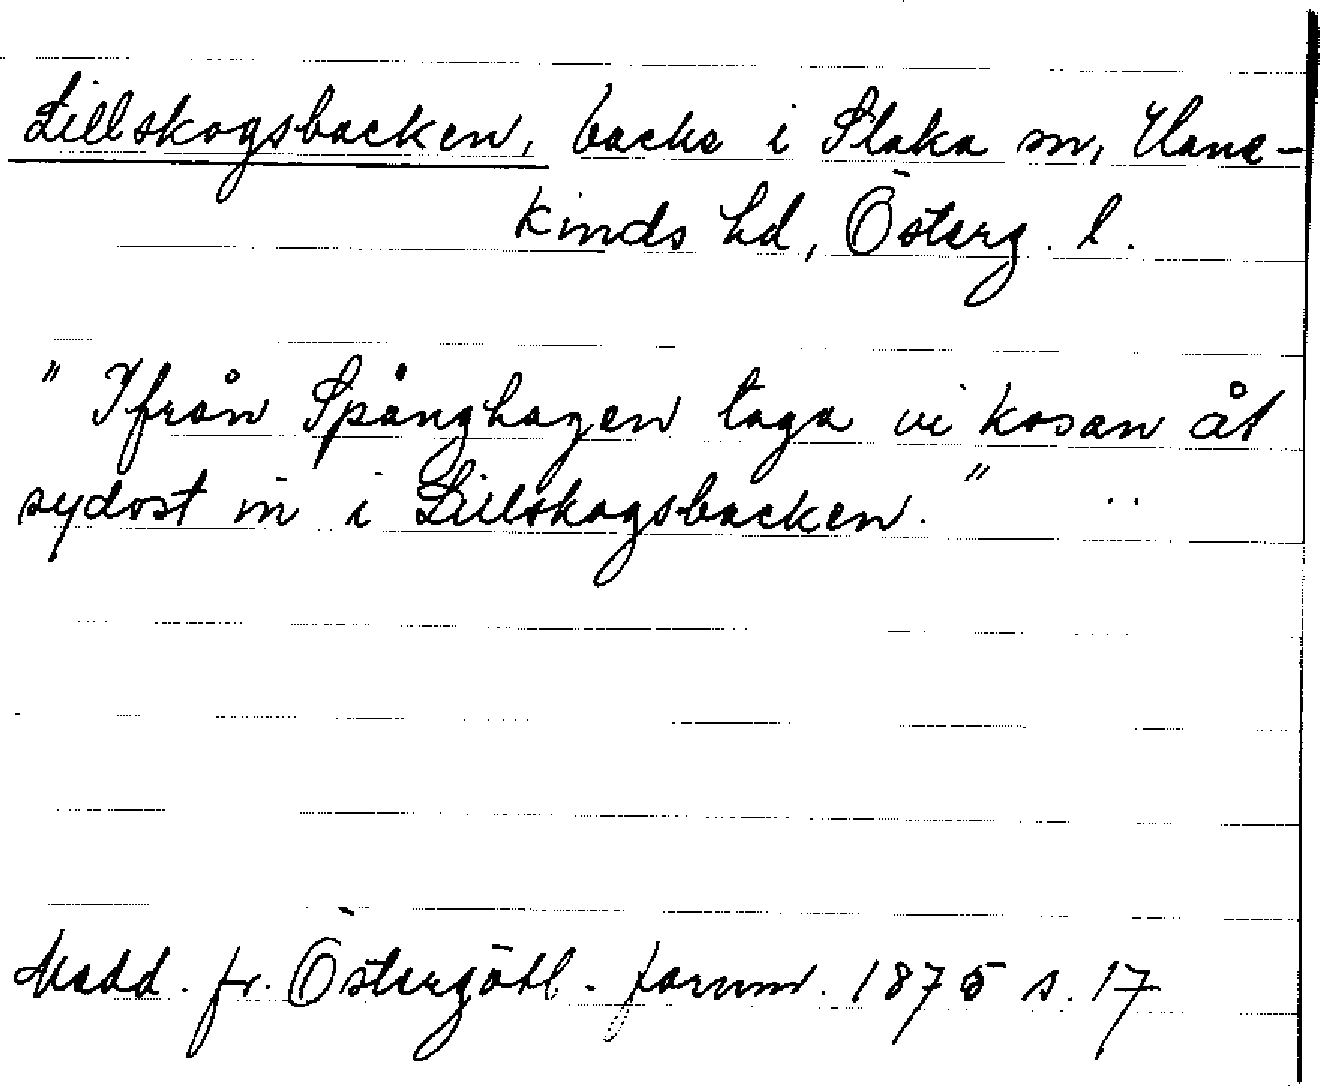 Lillskogsbacken, backe i Slaka sn, Hane-
kinds hd, Österg. l.
" Ifrån Spånghagen taga vi kosan åt
sydost in i Lillskogsbacken. "
Medd. fr. Östergötl. fornm. 1875 s. 17